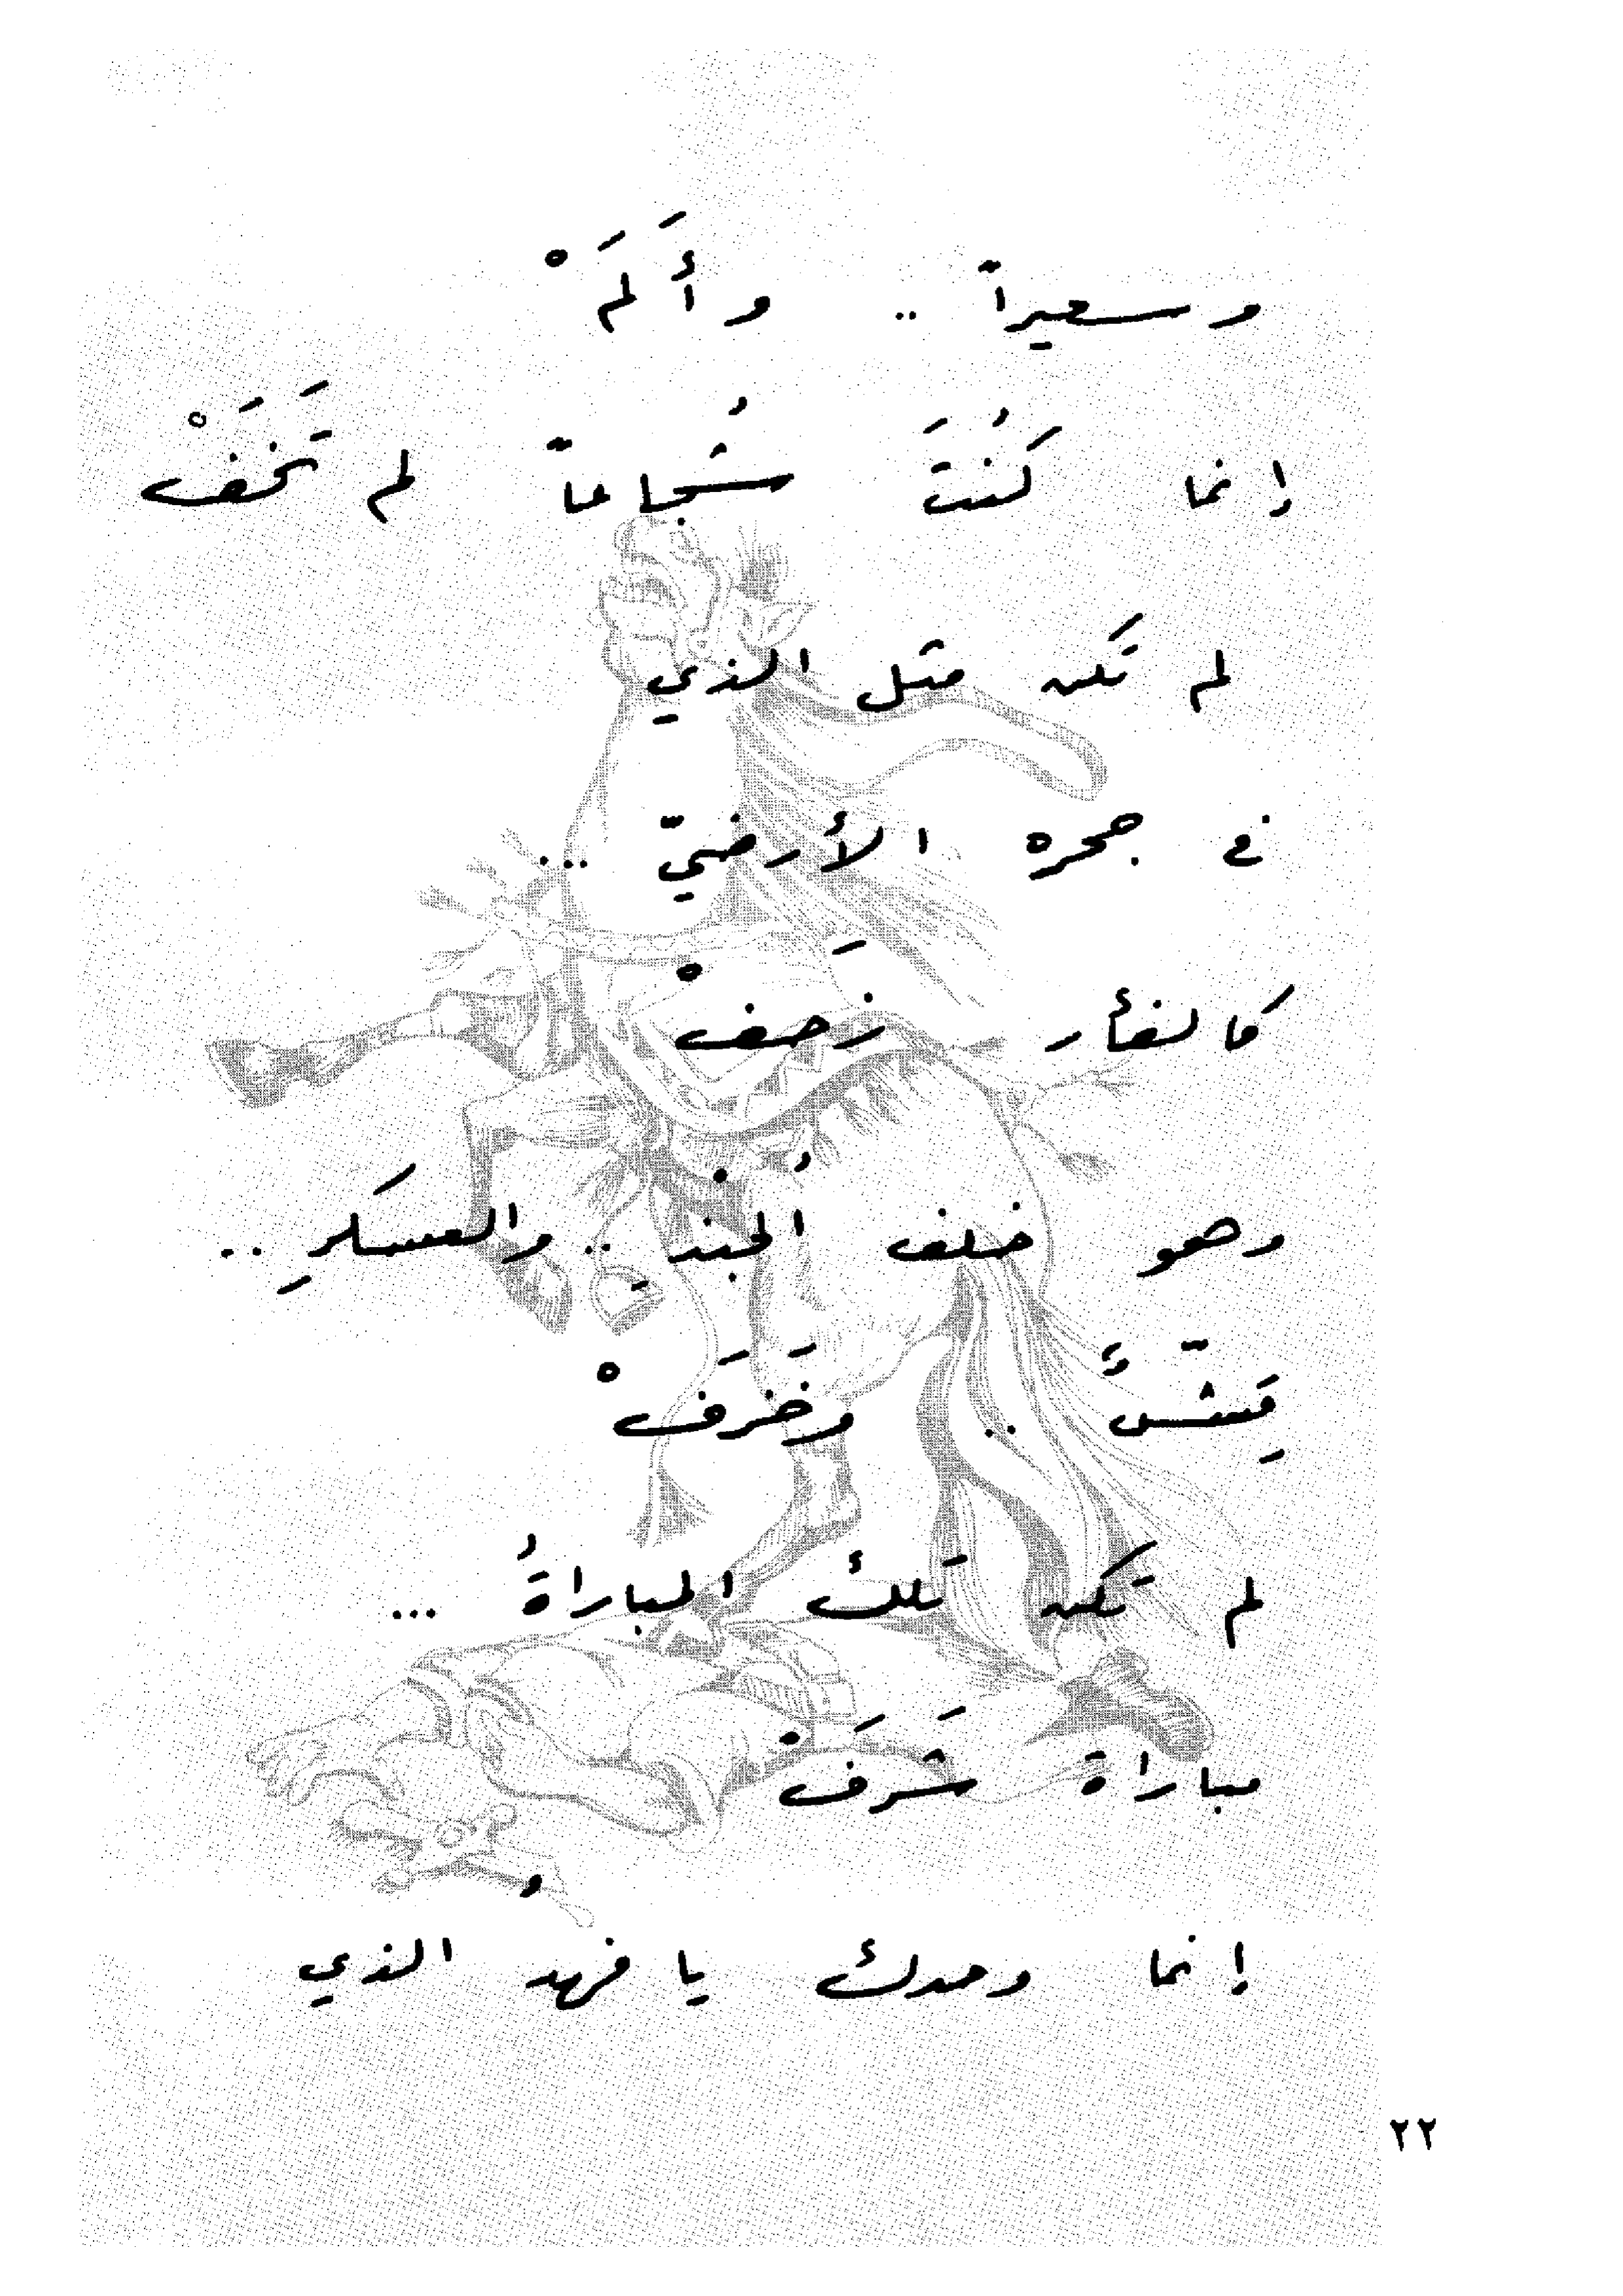 وسعيراً .. وأَلَمْ
إنما كنُتَ شُجاعاً لم تَخَفْ
لم تكن مثل الذي
في جحره الأرضيّ ...
كالفأر زَحفْ
وهو خلف الجُندِ .. والعسَكرِ ..
قِشّىٌ .. وَخَزَفْ
لم تكن تلك المباراةُ ...
مباراة شَرَفْ
إنما وحدك يا فهدُ الذي
٢٢